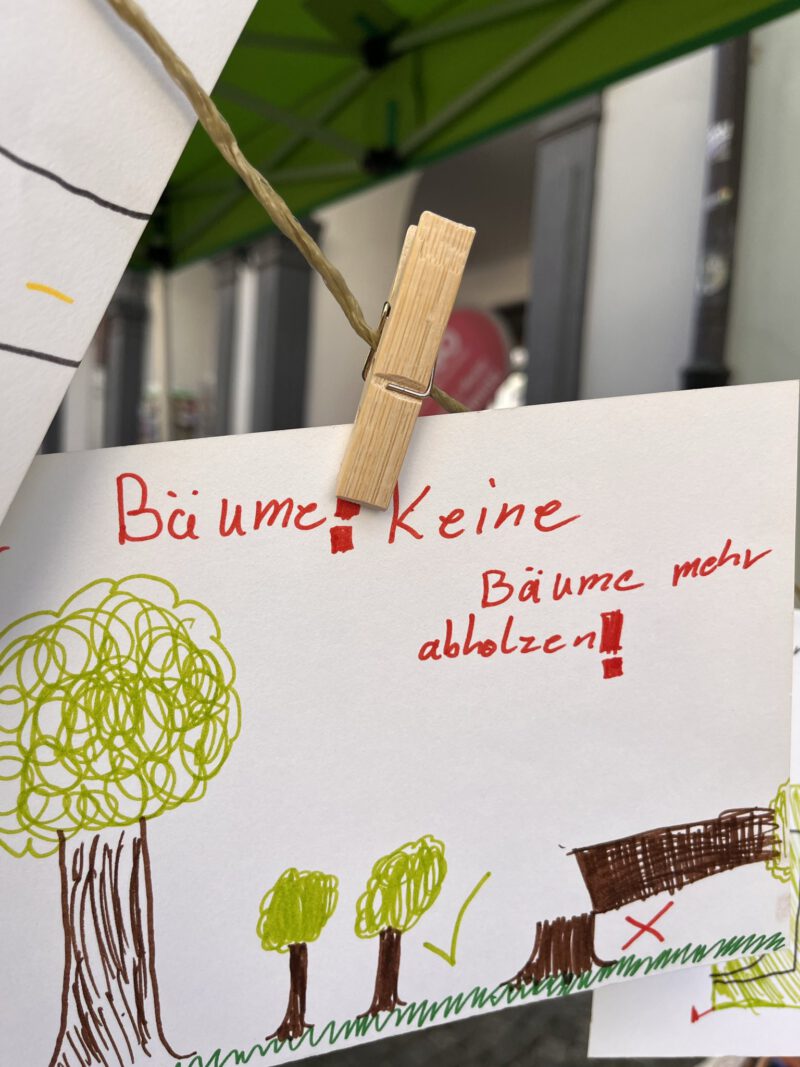 Bäume! Keine
Bäume mehr
abholzen!